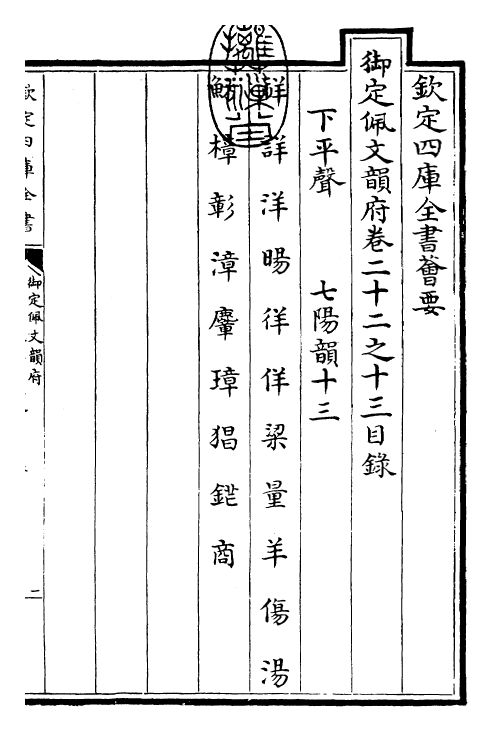 欽定四庫全書薈要
御定佩文韻府卷二十二之十三目錄
下平聲 七陽韻十三
詳 詳 洋 暘 徉 佯 梁 量 羊 傷 湯
樟 彰 漳 麞 璋 猖 鋩 商
欽定四庫全書
御定佩文韻府
二